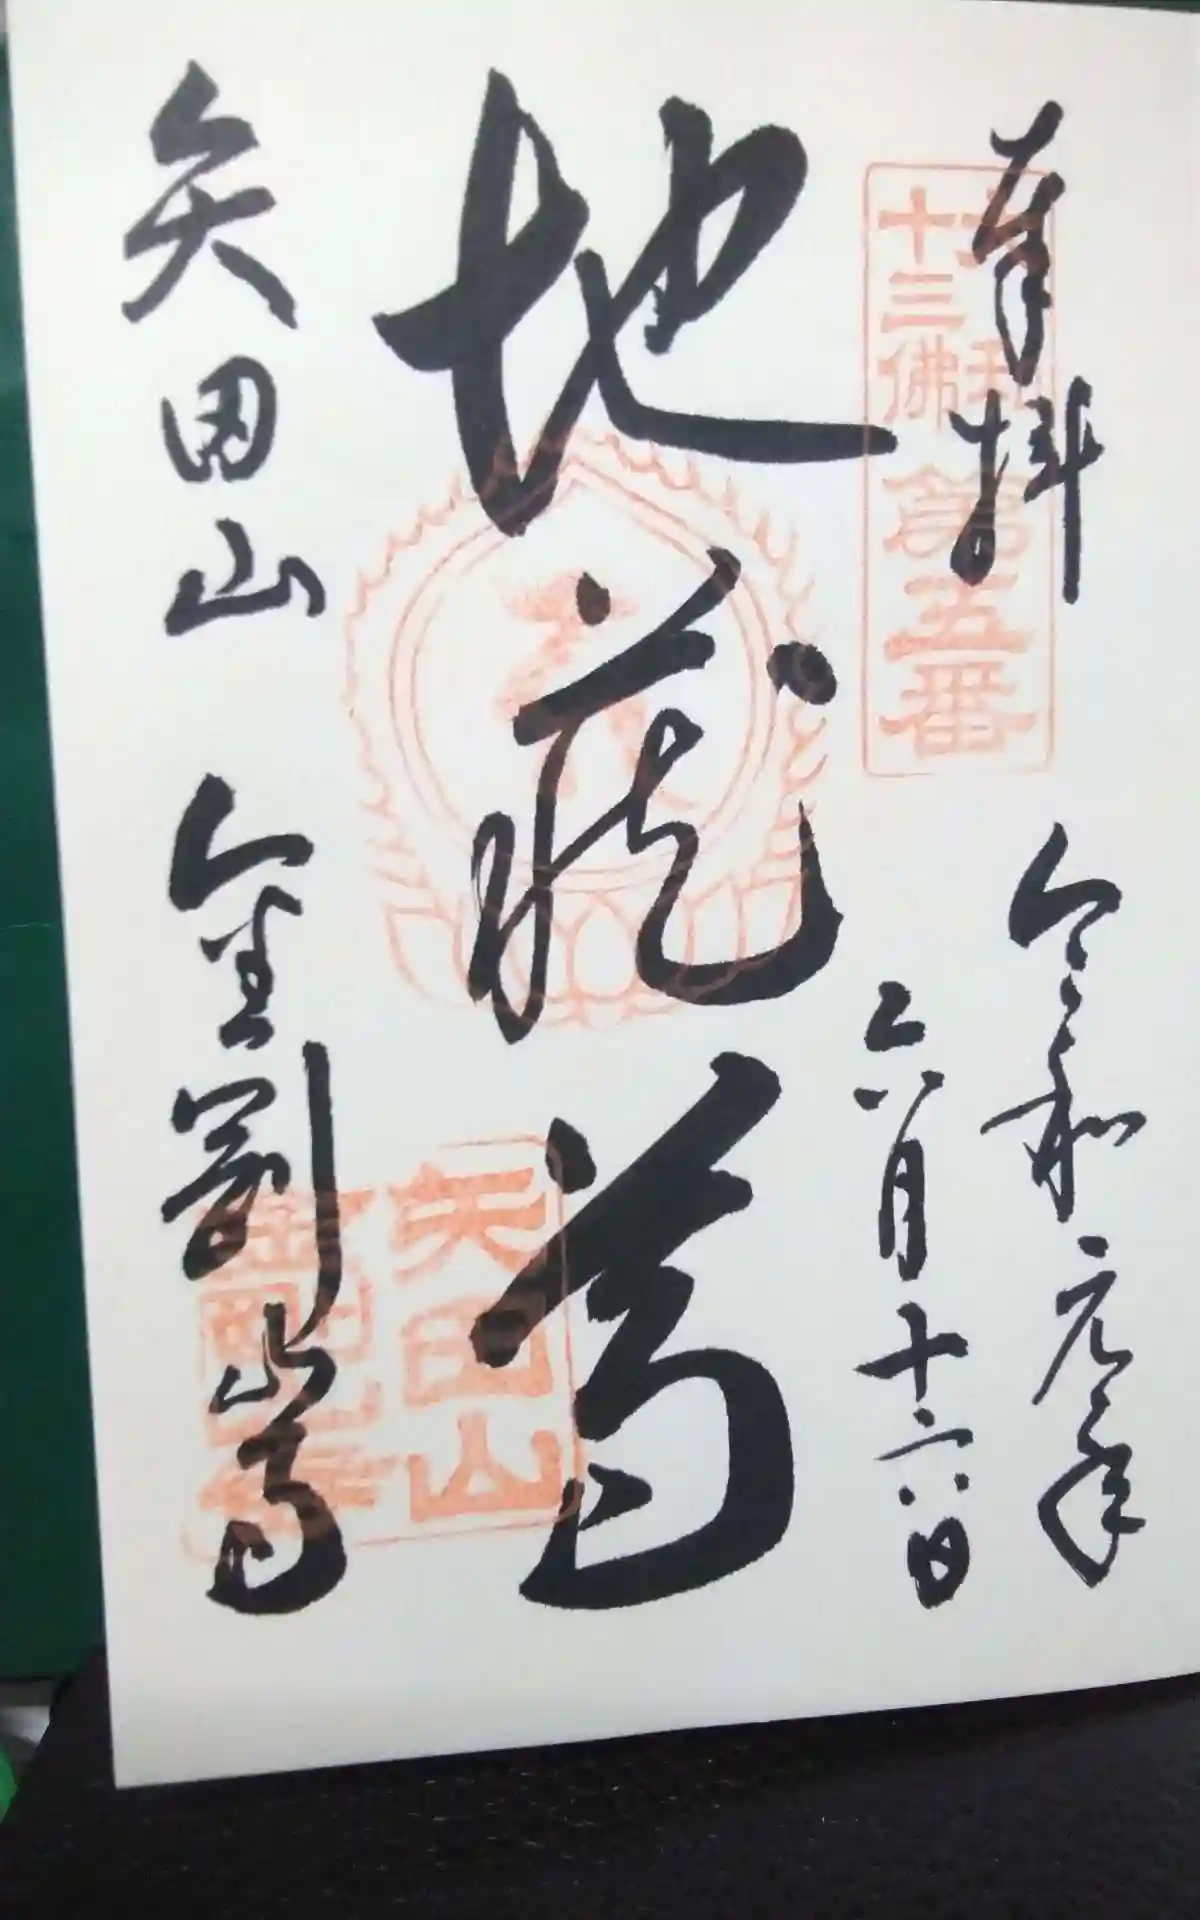 奉拝
大和
十三佛
第五番
令和元年
六月十六日
地蔵尊
矢田山 金剛山寺
矢田山